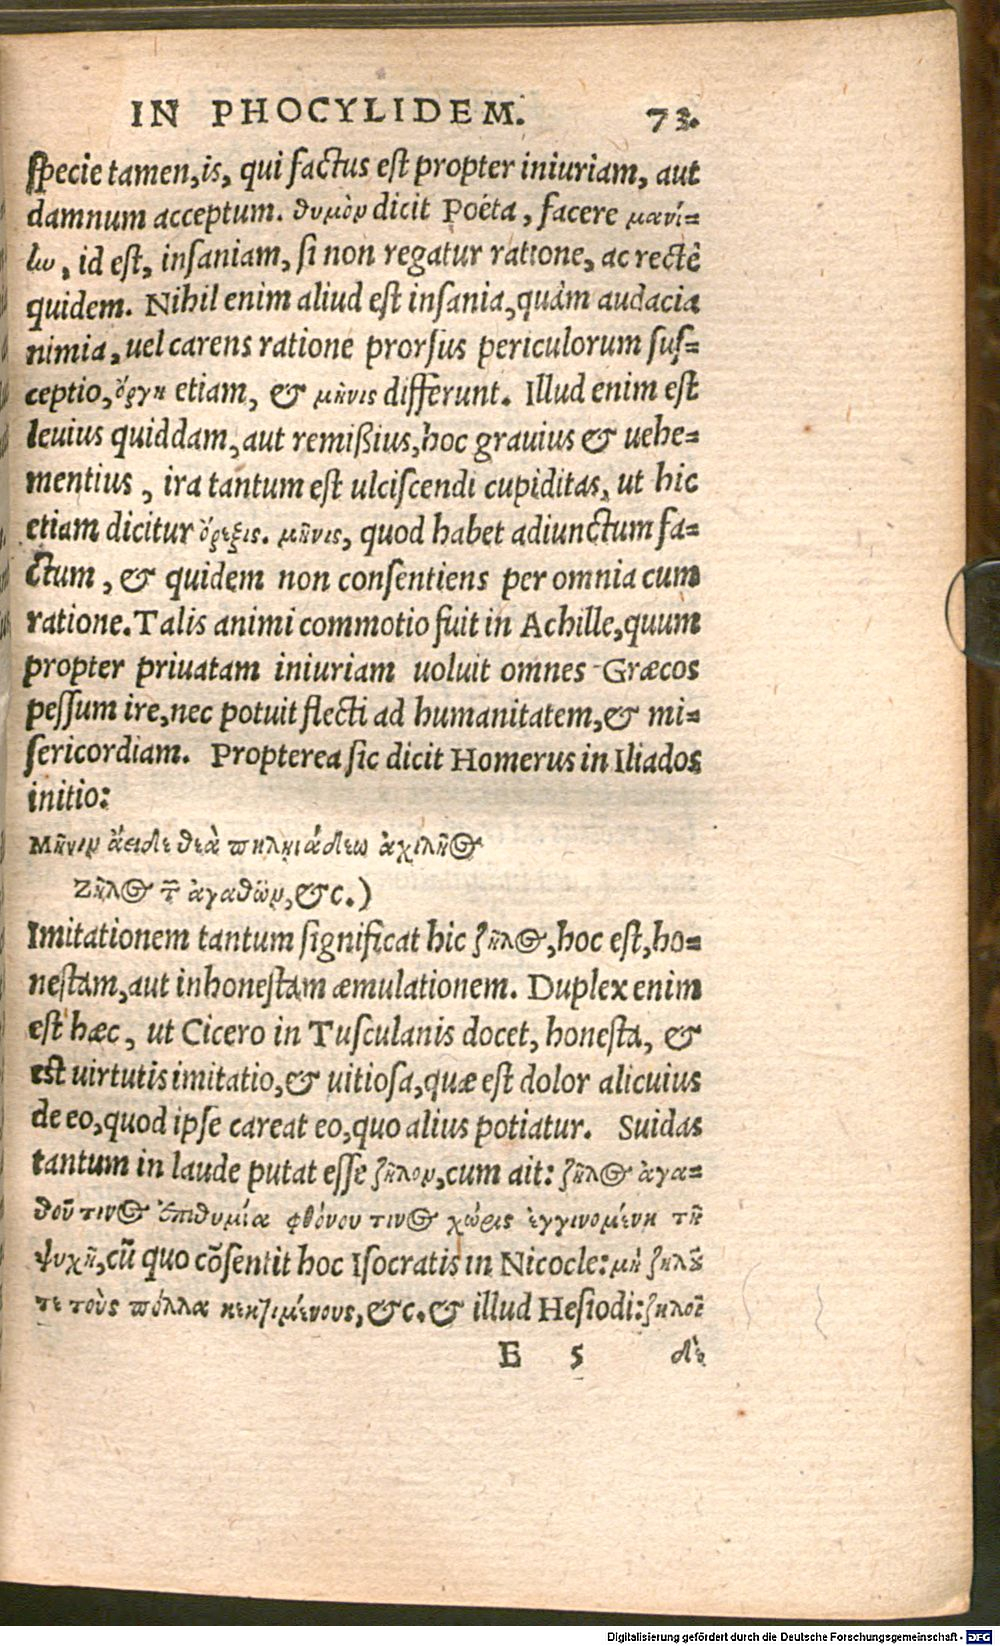 IN PHOCYLIDEM. 73.
specie tamen, is, qui factus est propter iniuriam, aut
damnum acceptum. θυμὸν dicit Poëta, facere μανί=
ην, id est, insaniam, si non regatur ratione, ac rectè
quidem. Nihil enim aliud est insania, quàm audacia
nimia, uel carens ratione prorsus periculorum sus=
ceptio, ὀργὴ etiam, & μῆνις differunt. Illud enim est
leuius quiddam, aut remißius, hoc grauius & uehe=
mentius, ira tantum est ulciscendi cupiditas, ut hic
etiam dicitur ὄρεξις. μῆνις, quod habet adiunctum fa=
ctum, & quidem non consentiens per omnia cum
ratione. Talis animi commotio fuit in Achille, quum
propter priuatam iniuriam uoluit omnes Græcos
pessum ire, nec potuit flecti ad humanitatem, & mi=
sericordiam. Propterea sic dicit Homerus in Iliados
initio:
Μῆνιν ἄειδε θεὰ πηληιάδεω ἀχιλῆος
Ζῆλος τ͂ ἀγαθῶν, &c.)
Imitationem tantum significat hic ζῆλος, hoc est, ho=
nestam, aut inhonestam æmulationem. Duplex enim
est hæc, ut Cicero in Tusculanis docet, honesta, &
est uirtutis imitatio, & uitiosa, quæ est dolor alicuius
de eo, quod ipse careat eo, quo alius potiatur. Suidas
tantum in laude putat esse ζῆλον, cum ait: ζῆλος ἀγα=
θοῦ τινος ἐπιθυμία φθόνου τινος χωρὶς ἐγγινομένη τῇ
ψυχῇ, cũ quo cõsentit hoc Isocratis in Nicocle: μὴ ζηλοῦ
τε τοὺς πόλλα κεκτημένους, &c. & illud Hesiodi: ζηλοῖ
E 5 δέ
Digitalisierung gefördert durch die Deutsche Forschungsgemeinschaft - DFG